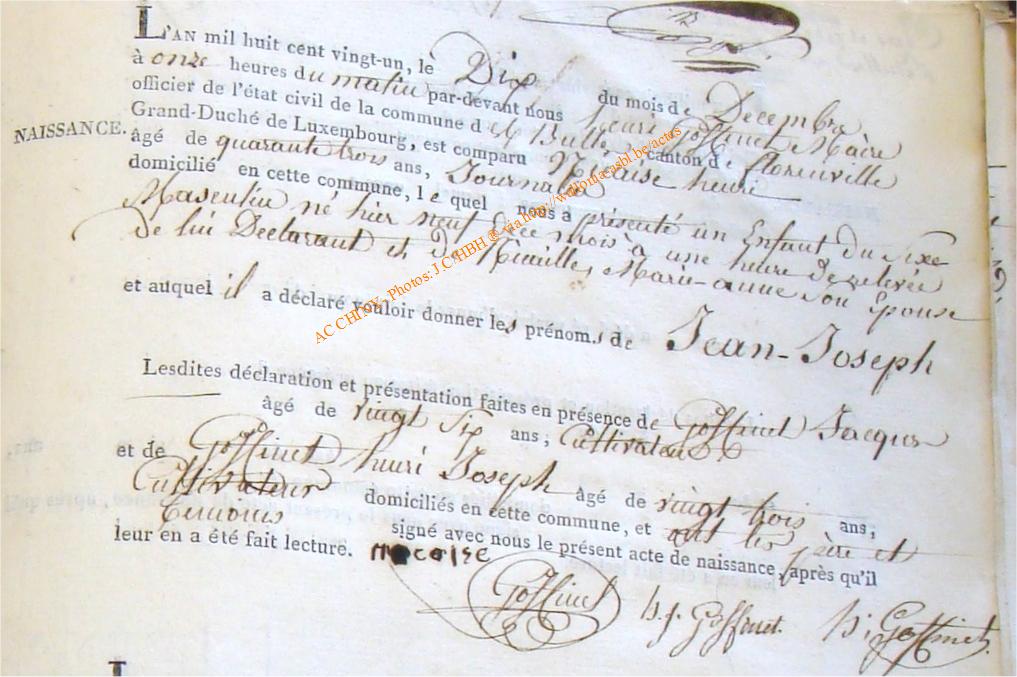 L'AN mil huit cent vingt-un, le Dix du mois de Decembre
à onze heures du matin par-devant nous henri Goffinet Maire
officier de l'état civil de la commune de Bulle, canton de florenville
NAISSANCE.
Grand-Duché de Luxembourg, est comparu Nicaise henri
âgé de quarante trois ans, Journalier
domicilié en cette commune, le quel nous a présenté un Enfant du sixe
Masculin né hier neuf de ce mois à une heure de relevée
de lui Declarant et de Marie-anne son Epouse
et auquel il a déclaré vouloir donner les prénoms de Jean-Joseph
Lesdites déclaration et présentation faites en présence de Goffinet Jacques
âgé de vingt Six ans, Cultivateur
et de Goffinet henri Joseph âgé de vingt trois ans,
Cultivateur domiciliés en cette commune, et ont les père et
temoins signé avec nous le présent acte de naissance, après qu'il
leur en a été fait lecture.
Goffinet h.j. Goffinet. h; Goffinet.
AC CHINY - Photos: J.C. HBH @ via http://wallonia-asbl.be/actes